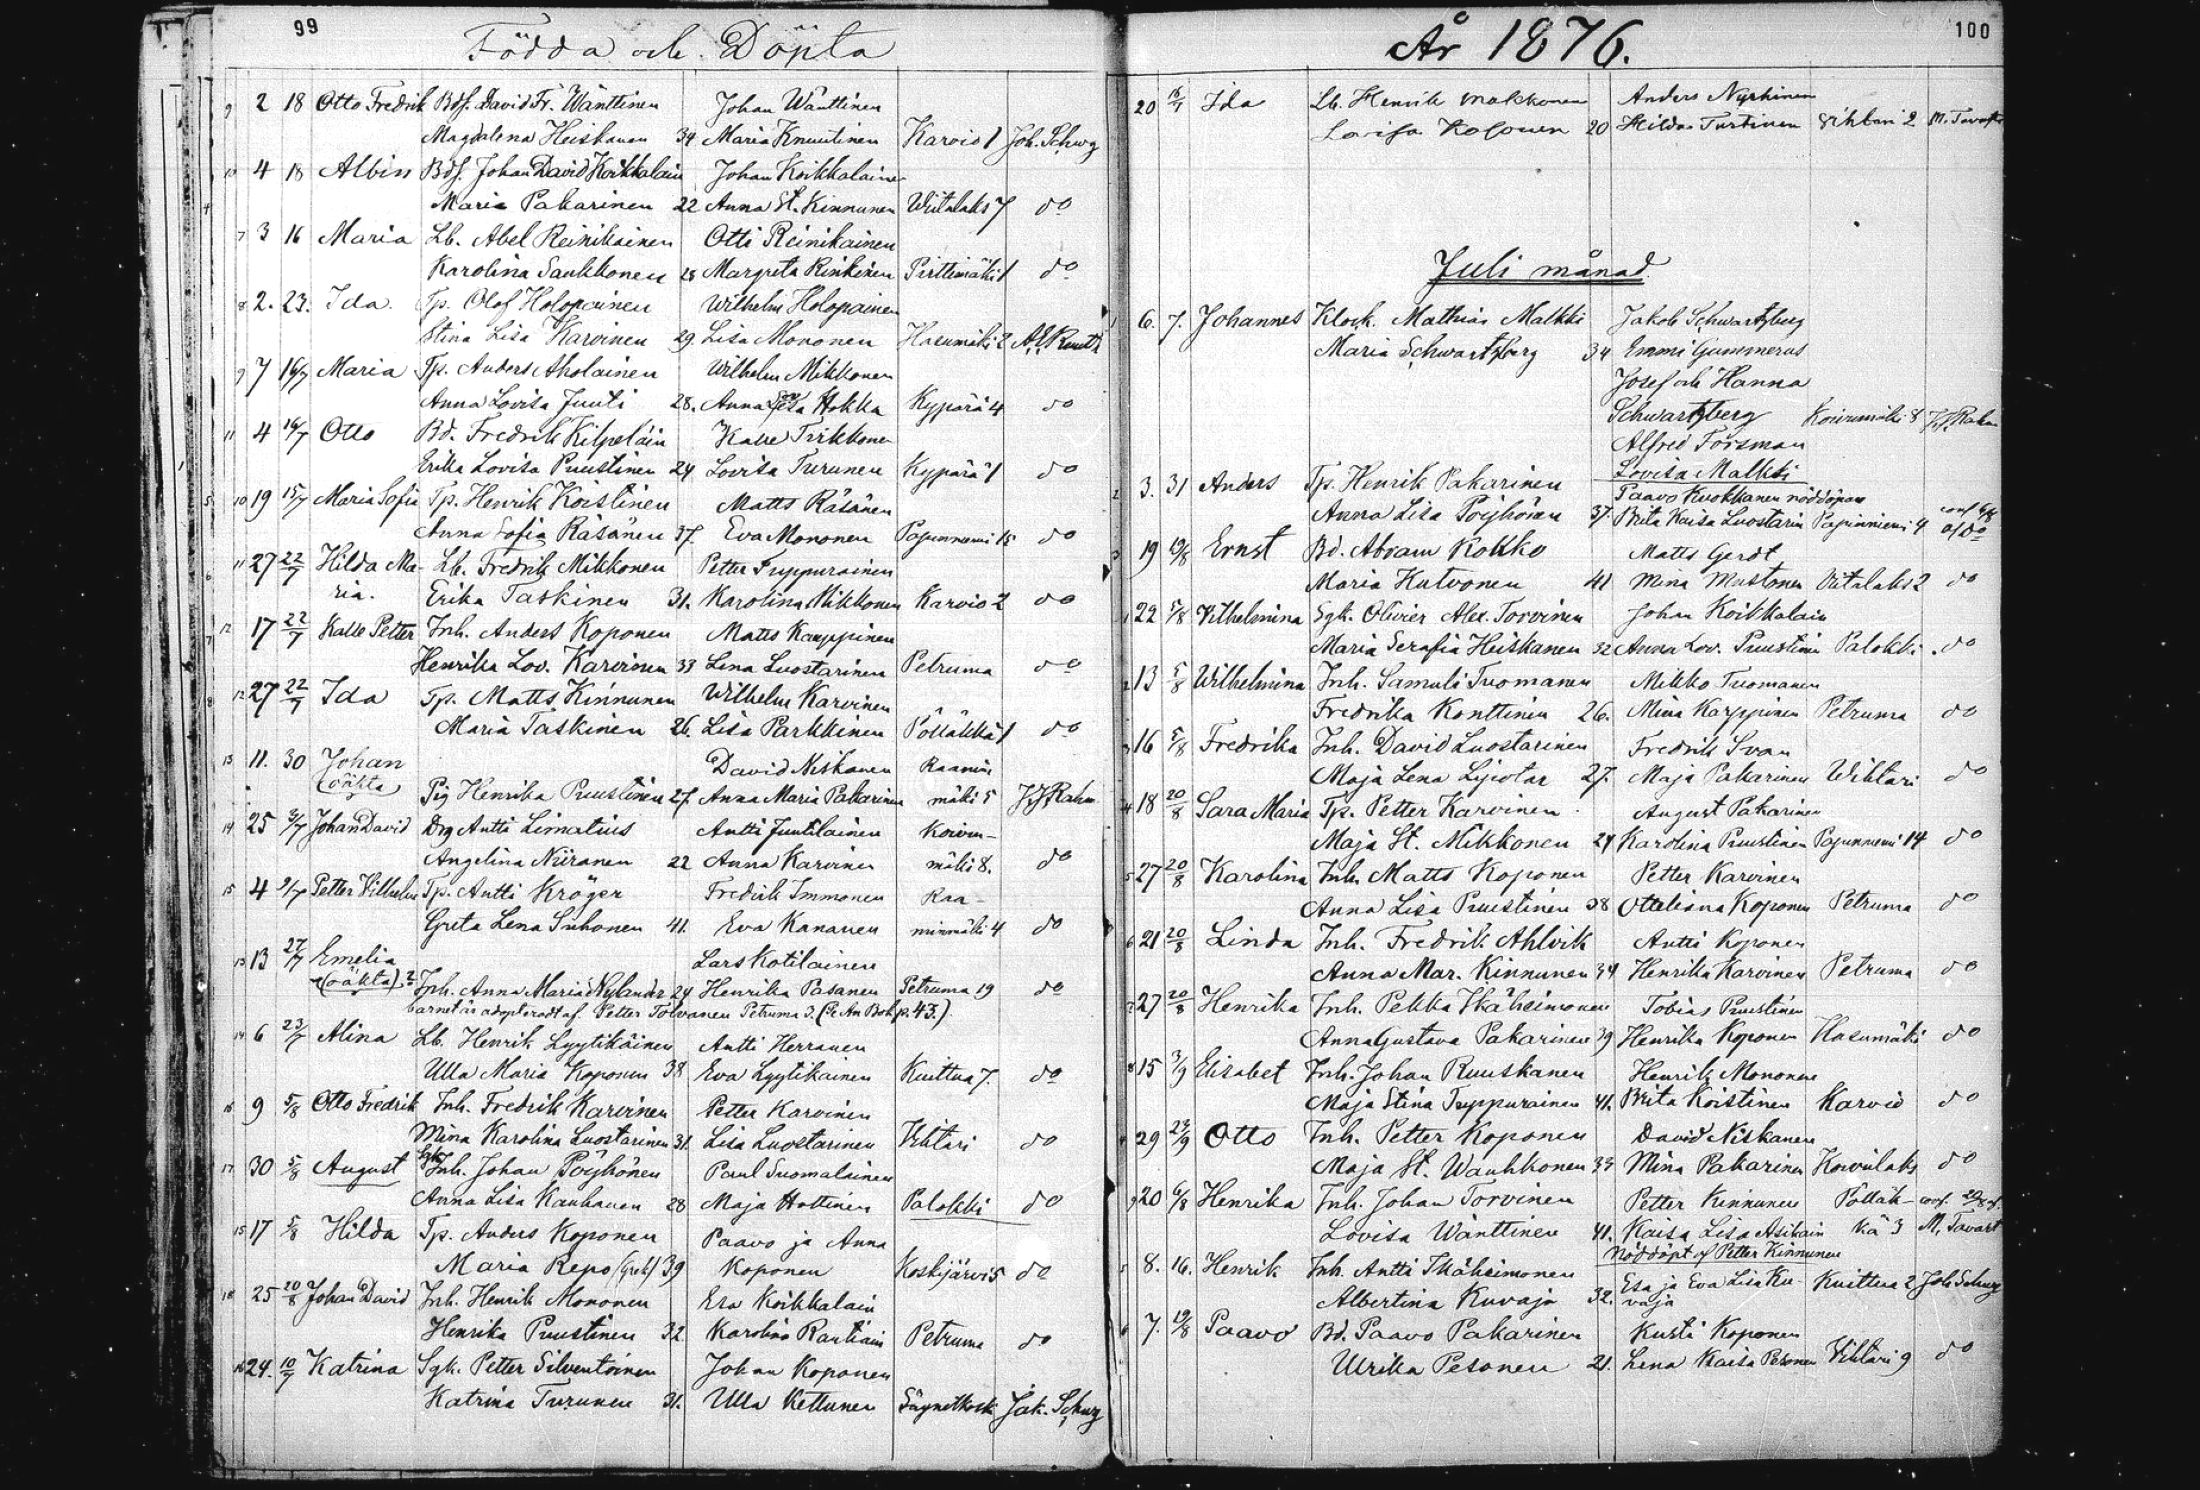 99
Födda och Döpta
9 2 18 Otto Fredrik Bdf. David Fr. Wänttinen Johan Wänttinen
Magdalena Heiskanen 34 Maria Knuutinen Karvio 1 Joh. Schwg
10 4 18 Albin Bdf. Johan David Koikkalain Johan Koikkalainen
Maria Pakarinen 22 Anna St. Kinnunen Wiitalaks 7 do
7 3 16 Maria Lb. Abel Reinikainen Otti Reinikainen
Karolina Saukkonen 28 Margreta Rinkinen Pirttimäki 1 do
8 2. 23. Ida. Tp. Olof Holopainen Wilhelm Holopainen
Stina Lisa Karvinen 29 Lisa Mononen Hasumäki 2
9 7 16/7 Maria Tp. Anders Aholainen Wilhelm Mikkonen
Anna Lovisa Juuti 28. Anna Hokka Kypärä 4 do
11 4 16/7 Otto Bd. Fredrik Kilpeläin Kalle Tirkkonen
Erika Lovisa Puustinen 24 Lovisa Turunen Kypärä 1 do
10 19 15/7 Maria Sofia Tp. Henrik Koistinen Matts Räsänen
Anna Sofia Räsänen 37. Eva Mononen Papinniemi 15 do
11 27 22/7 Hilda Ma- Lb. Fredrik Mikkonen Petter Tuppurainen
ria. Erika Taskinen 31. Karolina Mikkonen Karvio 2 do
12 17 22/7 Kalle Petter Inh. Anders Koponen Matts Karppinen
Henrika Lov. Karvinen 33 Lena Luostarinen Petruma do
12 27 22/7 Ida Tp. Matts Kinnunen Wilhelm Karvinen
Maria Taskinen 26. Lisa Parkkinen Pölläkkä 1 do
13 11. 30 Johan David Niskanen Raanin
(oäkta) Pig Henrika Puustinen 27. Anna Maria Pakarinen mäki 5 J.J. Rahm
14 25 3/7 Johan David Drg Antti Limatius Antti Juutilainen Koivu-
Angelina Niiranen 22 Anna Karvinen mäki 8. do
15 4 9/7 Petter Vilhelm Tp. Antti Kröger Fredrik Immonen Raa-
Greta Lena Suhonen 41. Eva Kananen ninmäki 4 do
13 13 27/7 Emelia Lars Kotilainen
(oäkta) Inh. Anna Maria Nylander 24 Henrika Pasanen Petruma 19 do
barnet är adopteradt af Petter Tolvanen Petruma 3. p. 43.)
14 6 23/7 Alina Lb. Henrik Lyytikäinen Antti Herranen
Ulla Maria Koponen 38 Eva Lyytikäinen Kuittua 7. do
16 9 5/8 Otto Fredrik Inh. Fredrik Karvinen Petter Karvinen
Mina Karolina Luostarinen 31. Lisa Luostarinen Vihtari do
17 30 5/8 August Inh. Johan Pöyhönen Paul Suomalainen
Anna Lisa Kauhanen 28 Maja Hottinen Palokki do
15 17 5/8 Hilda Tp. Anders Koponen Paavo ja Anna
Maria Repo (Grek) 39 Koponen Koskijärvi 5 do
18 25 20/8 Johan David Inh. Henrik Mononen Esa Koikkalain
Henrika Puustinen 32 Karolina Rautiain Petruma do
16 24. 10/7 Katrina Sgk. Petter Silventoinen Johan Koponen
Katrina Turunen 31. Ulla Kettunen Säynetkosk Jak. Schwg
År 1876.
100
20 16/7 Ida Lb. Henrik Makkonen Anders Nyrhinen
Lovisa Kosonen 20 Hilda Turtinen Vihtari 2 M. Tavast
Juli månad
1 6. 7. Johannes Klock. Mathias Malkki Jakob Schwartzberg
Maria Schwartzberg 34 Emmi Gummerus
Josef och Hanna
Schwartzberg Koivumäki 8 J.J. Rahm
Alfred Forsman
Lovisa Malkki
2 3. 31 Anders Tp. Henrik Pakarinen Paavo Kuokkanen nöddöpare
Anna Lisa Pöyhönen 37. Brita Kaisa Luostarin Papinniemi 4 conf 6/8 af do
3 19 19/8 Ernst Bd. Abram Kokko Matts Gerdt
Maria Kutvonen 41 Mina Mustonen Viitalaks 2 do
1 22 5/8 Vilhelmina Sgk. Olivier Alex. Torvinen Johan Koikkalain
Maria Serafia Heiskanen 32 Anna Lov. Puustinen Palokki. do
2 13 5/8 Wilhelmina Inh. Samuli Tuomanen Mikko Tuomanen
Fredrika Konttinen 26. Mina Karppinen Petruma do
3 16 5/8 Fredrika Inh. David Luostarinen Fredrik Svan
Maja Lena Lipotar 27. Maja Pakarinen Wihtari do
4 18 20/8 Sara Maria Tp. Petter Karvinen August Pakarinen
Maja St. Mikkonen 24 Karolina Puustinen Papinniemi 14 do
5 27 20/8 Karolina Inh. Matts Koponen Petter Karvinen
Anna Lisa Puustinen 38 Otteliana Koponen Petruma do
6 21 20/8 Linda Inh. Fredrik Ahlvik Antti Koponen
Anna Mar. Kinnunen 34 Henrika Karvinen Petruma do
7 27 20/8 Henrika Inh. Pekka Ikäheimonen Tobias Puustinen
Anna Gustava Pakarinen 39 Henrika Koponen Hasumäki do
8 15 3/9 Elisabet Inh. Johan Ruuskanen Henrik Mononen
Maja Stina Tuppurainen 41. Brita Koistinen Karvio do
4 29 24/9 Otto Inh. Petter Koponen David Niskanen
Maja St. Wauhkonen 33 Mina Pakarinen Koivulaks do
9 20 6/8 Henrika Inh. Johan Torvinen Petter Kinnunen Pölläk- conf. 20/8 af
Lovisa Wänttinen 41. Kaisa Lisa Asikain kä 3 M. Tavast
Nöddöpt af Petter Kinnunen
5 8. 16. Henrik Inh. Antti Ikäheimonen Esa ja Eva Lisa Ku- Kuittua 2 Joh Schwg
Albertina Kuvaja 32. vaja
6 7. 19/8 Paavo Bd. Paavo Pakarinen Kusti Koponen
Ulrika Pesonen 21. Lena Kaisa Pesonen Vihtari 9 do